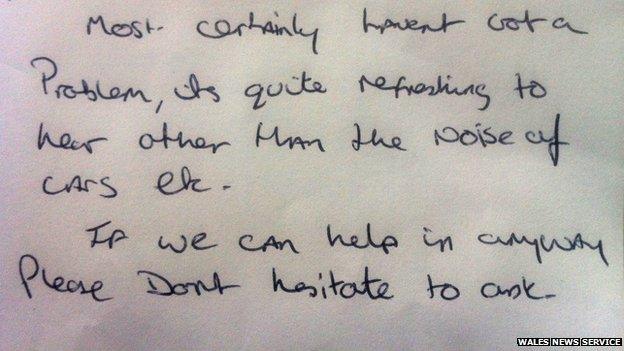 Most certainly havent got a
Problem, its quite refreshing to
hear other than the Noise of
CARS etc.
If we can help in anyway
Please Dont hesitate to ask.
WALES NEWS SERVICE